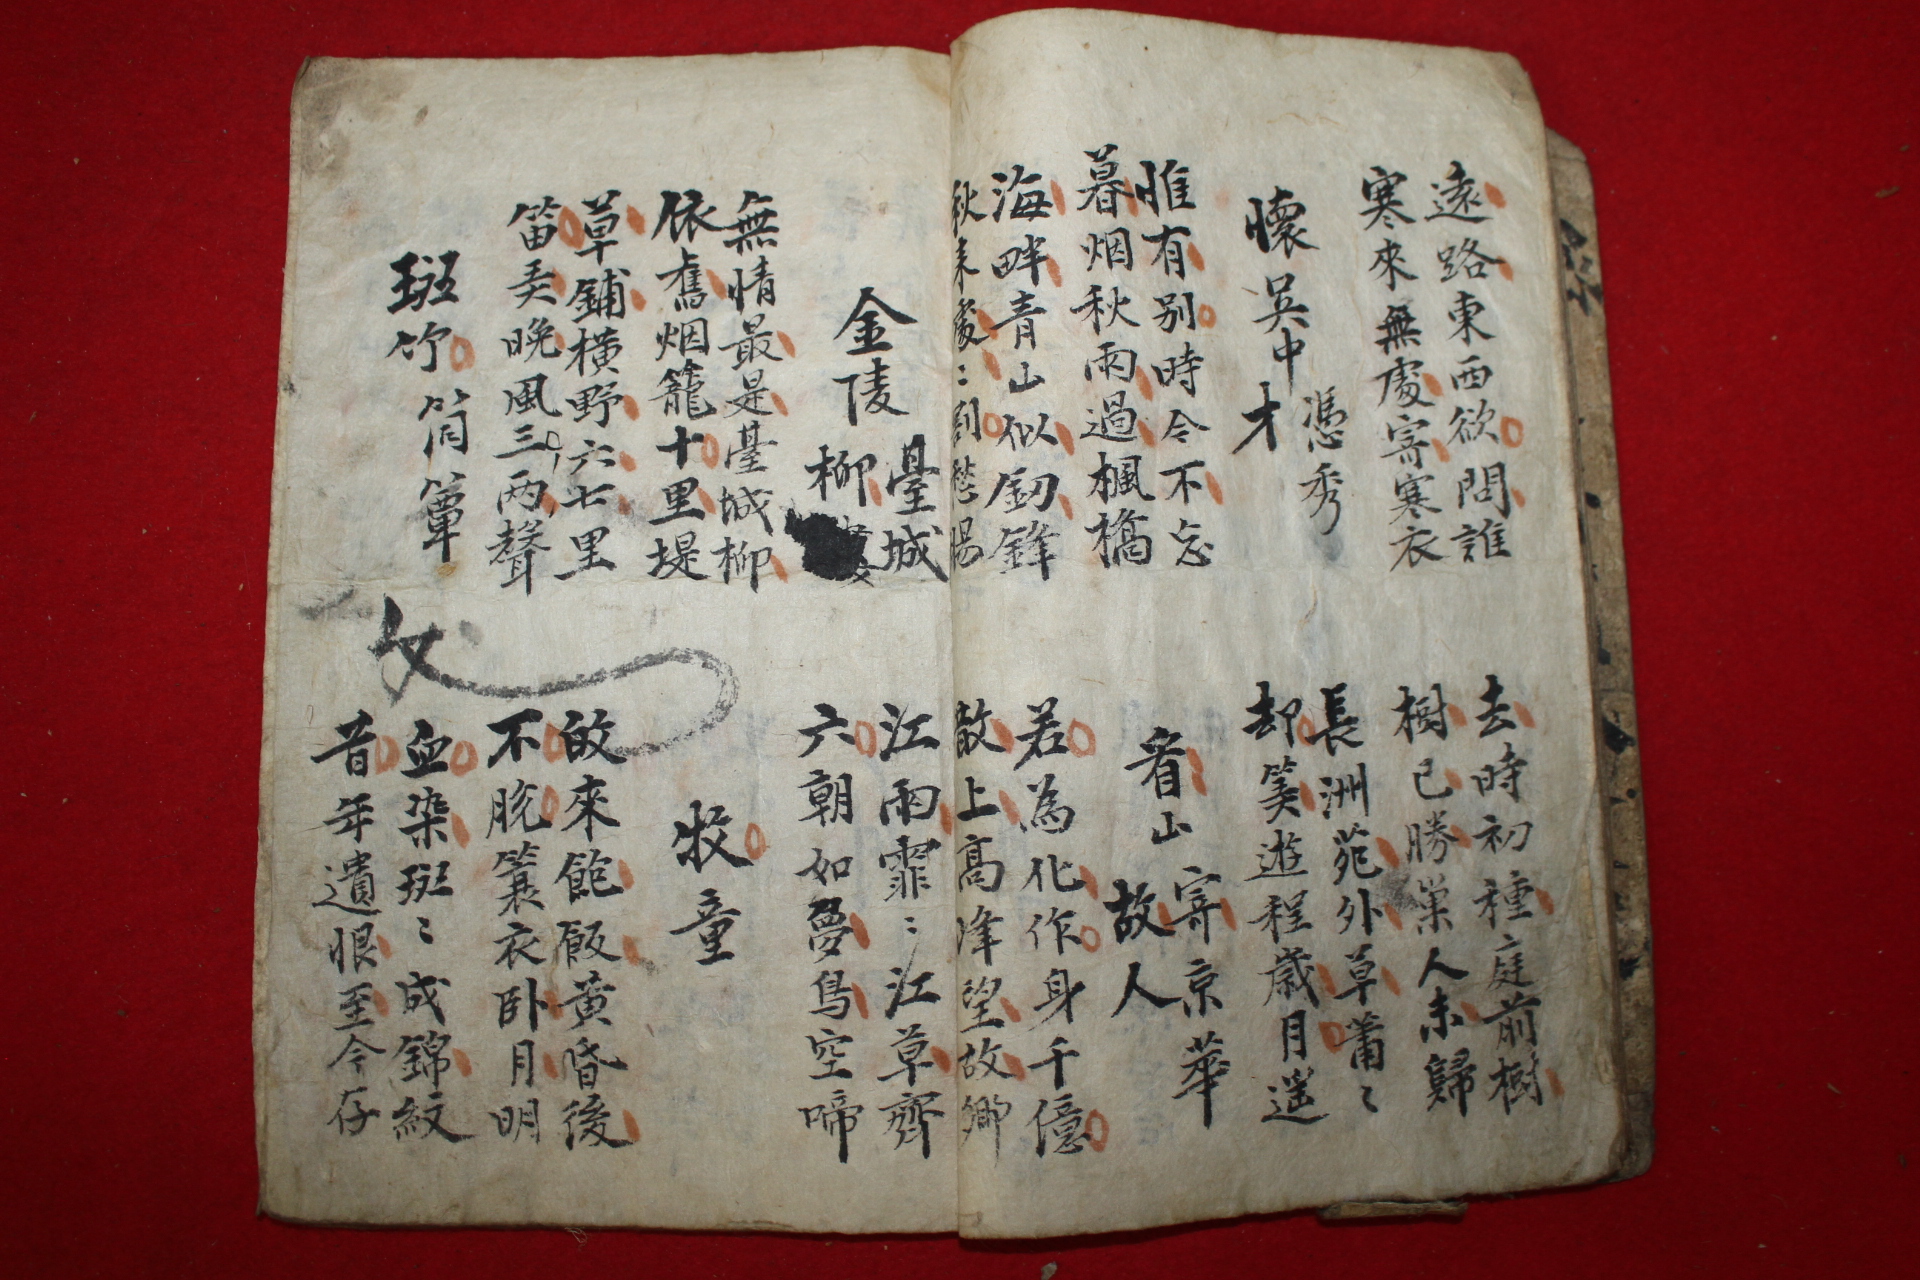 遠路東西欲問誰
寒來無處寄寒衣
去時初種庭前樹
樹已勝巢人未歸
懷吳中憑秀才
長洲苑外草蕭〻
却筭遊程歲月遥
惟有别時今不忘
暮烟秋雨過楓橋
看山寄京華故人
海畔青山似釰鋒
秋来處〻割愁腸
若為化作身千億
散上高峰望故鄉
金陵臺城柳
江雨霏〻江草齊
六朝如夢鳥空啼
無情最是臺城柳
依舊烟籠十里堤
牧童
草鋪橫野六七里
笛弄晚風三兩聲
皈來飽飯黃昏後
不脫簑衣卧月明
班竹筒簟
血染班〻成錦紋
昔年遺恨至今存
女